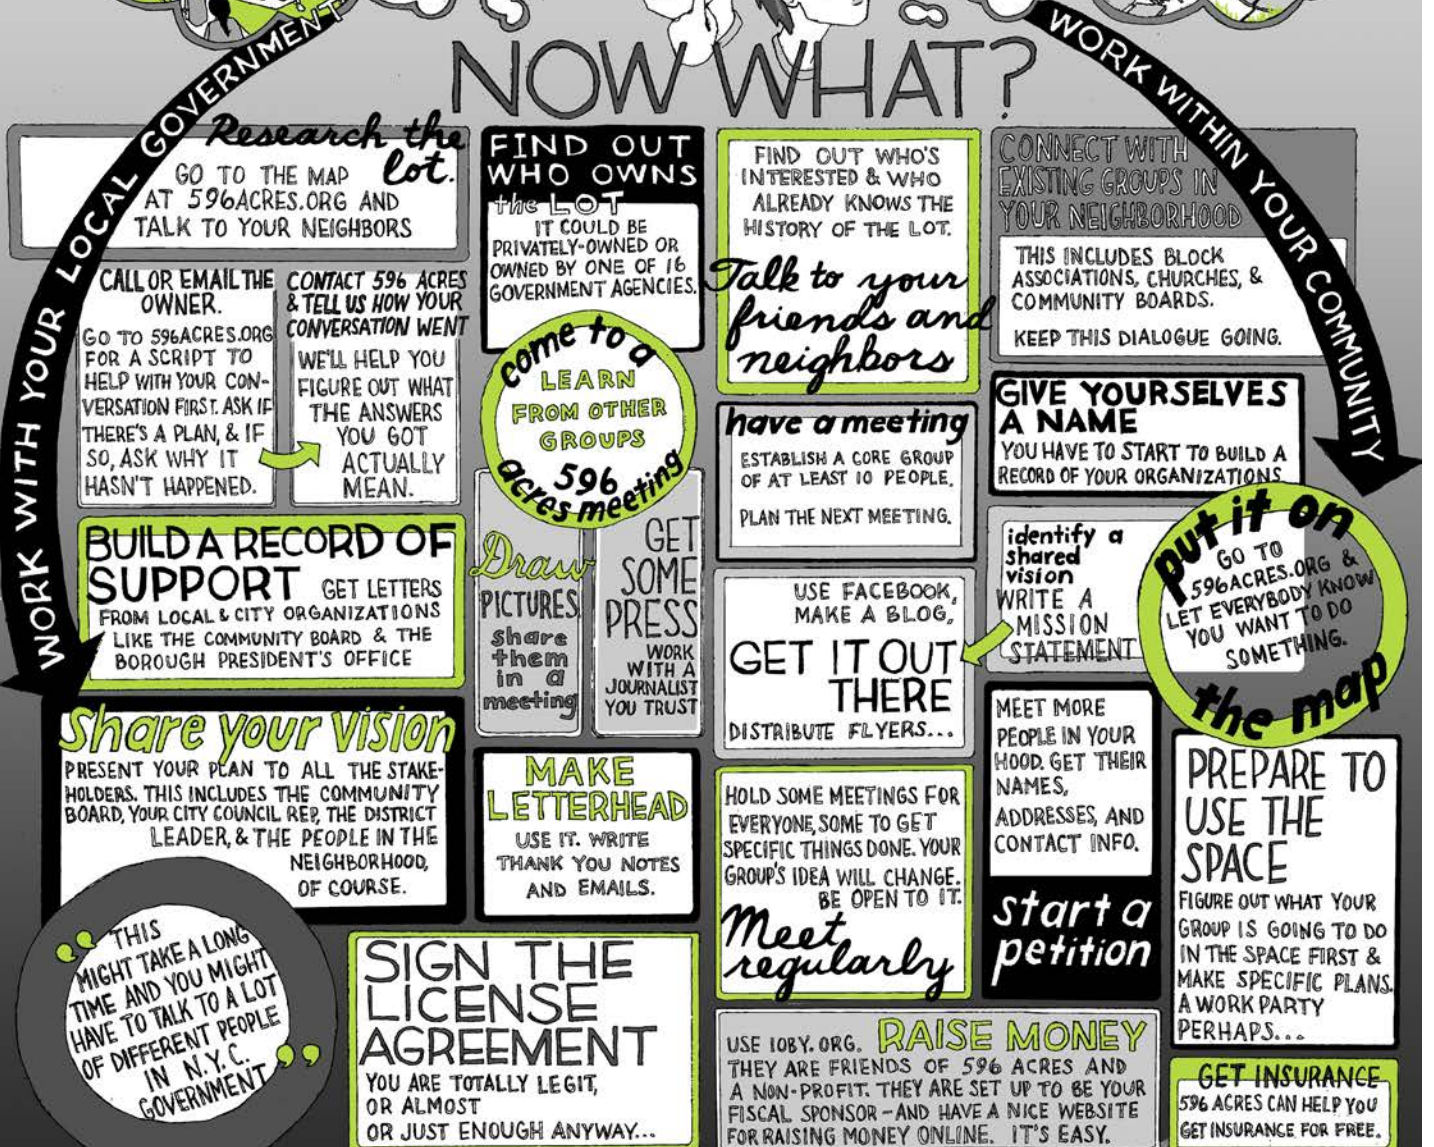 NOW WHAT?
WORK WITH YOUR LOCAL GOVERNMENT
WORK WITHIN YOUR COMMUNITY
Research the
lot.
GO TO THE MAP
AT 596ACRES.ORG AND
TALK TO YOUR NEIGHBORS
CALL OR EMAIL THE
OWNER.
GO TO 596ACRES.ORG
FOR A SCRIPT TO
HELP WITH YOUR CON-
VERSATION FIRST. ASK IF
THERE'S A PLAN, & IF
SO, ASK WHY IT
HASN'T HAPPENED.
CONTACT 596 ACRES
& TELL US HOW YOUR
CONVERSATION WENT
WE'LL HELP YOU
FIGURE OUT WHAT
THE ANSWERS
YOU GOT
ACTUALLY
MEAN.
BUILD A RECORD OF
SUPPORT GET LETTERS
FROM LOCAL & CITY ORGANIZATIONS
LIKE THE COMMUNITY BOARD & THE
BOROUGH PRESIDENT'S OFFICE
Share your vision
PRESENT YOUR PLAN TO ALL THE STAKE-
HOLDERS. THIS INCLUDES THE COMMUNITY
BOARD, YOUR CITY COUNCIL REP, THE DISTRICT
LEADER, & THE PEOPLE IN THE
NEIGHBORHOOD,
OF COURSE.
"THIS
MIGHT TAKE A LONG
TIME AND YOU MIGHT
HAVE TO TALK TO A LOT
OF DIFFERENT PEOPLE
IN N.Y.C.
GOVERNMENT"
FIND OUT
WHO OWNS
the LOT
IT COULD BE
PRIVATELY-OWNED OR
OWNED BY ONE OF 16
GOVERNMENT AGENCIES.
come to a
LEARN
FROM OTHER
GROUPS
596
acres meeting
Draw
PICTURES
share
them
in a
meeting
GET
SOME
PRESS
WORK
WITH A
JOURNALIST
YOU TRUST
MAKE
LETTERHEAD
USE IT. WRITE
THANK YOU NOTES
AND EMAILS.
SIGN THE
LICENSE
AGREEMENT
YOU ARE TOTALLY LEGIT,
OR ALMOST
OR JUST ENOUGH ANYWAY...
FIND OUT WHO'S
INTERESTED & WHO
ALREADY KNOWS THE
HISTORY OF THE LOT.
Talk to your
friends and
neighbors
have a meeting
ESTABLISH A CORE GROUP
OF AT LEAST 10 PEOPLE.
PLAN THE NEXT MEETING.
USE FACEBOOK,
MAKE A BLOG,
GET IT OUT
THERE
DISTRIBUTE FLYERS...
HOLD SOME MEETINGS FOR
EVERYONE, SOME TO GET
SPECIFIC THINGS DONE. YOUR
GROUP'S IDEA WILL CHANGE.
BE OPEN TO IT.
Meet
regularly
CONNECT WITH
EXISTING GROUPS IN
YOUR NEIGHBORHOOD
THIS INCLUDES BLOCK
ASSOCIATIONS, CHURCHES, &
COMMUNITY BOARDS.
KEEP THIS DIALOGUE GOING.
GIVE YOURSELVES
A NAME
YOU HAVE TO START TO BUILD A
RECORD OF YOUR ORGANIZATIONS
identify a
shared
vision
WRITE A
MISSION
STATEMENT
put it on
GO TO
596ACRES.ORG &
LET EVERYBODY KNOW
YOU WANT TO DO
SOMETHING.
the map
MEET MORE
PEOPLE IN YOUR
HOOD. GET THEIR
NAMES,
ADDRESSES, AND
CONTACT INFO.
start a
petition
PREPARE TO
USE THE
SPACE
FIGURE OUT WHAT YOUR
GROUP IS GOING TO DO
IN THE SPACE FIRST &
MAKE SPECIFIC PLANS.
A WORK PARTY
PERHAPS...
USE IOBY.ORG. RAISE MONEY
THEY ARE FRIENDS OF 596 ACRES AND
A NON-PROFIT. THEY ARE SET UP TO BE YOUR
FISCAL SPONSOR - AND HAVE A NICE WEBSITE
FOR RAISING MONEY ONLINE. IT'S EASY.
GET INSURANCE
596 ACRES CAN HELP YOU
GET INSURANCE FOR FREE.